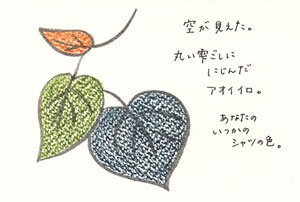 空が見えた。
丸い雫ごしに
にじんだ
アオイイロ。
あなたの
いつかの
シャツの色。